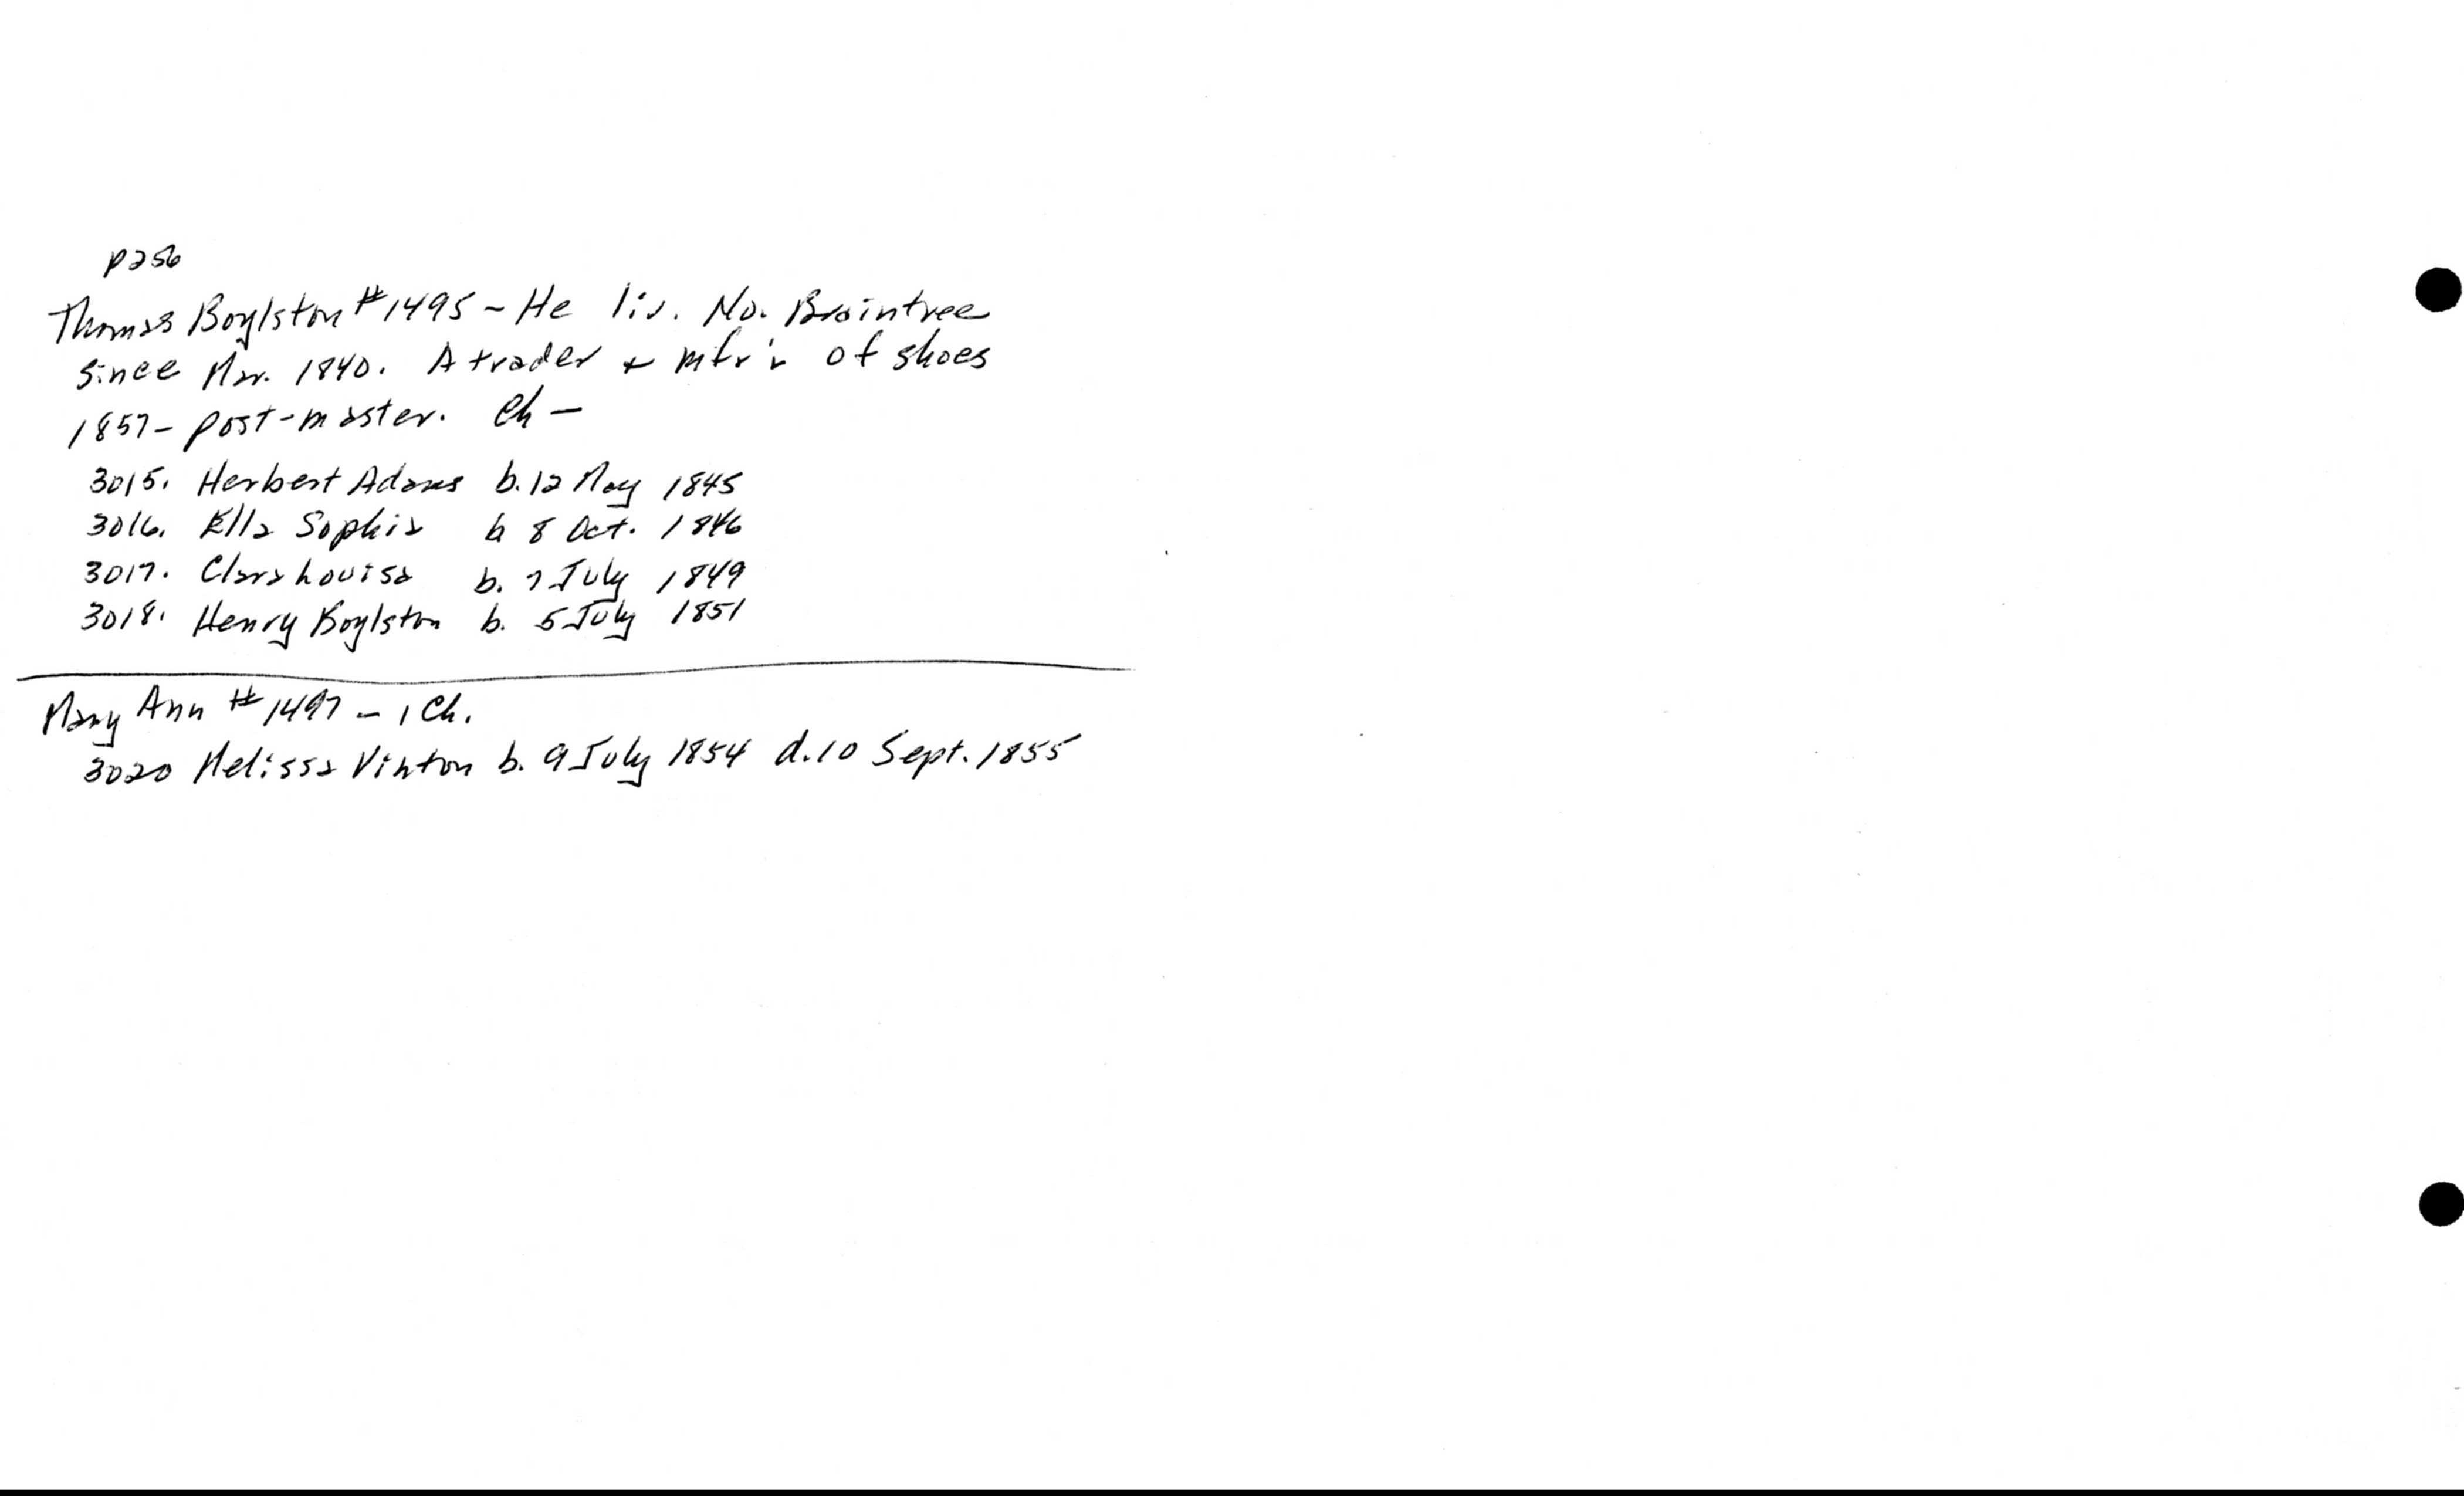 p256
Thomas Boylston #1495 - He liv. No. Braintree
since Mar. 1840. A trader + mfr'r of shoes
1857- post-master. Ch -
3015. Herbert Adams b. 12 May 1845
3016. Ella Sophia b 8 Oct. 1846
3017. Clara Louisa b. 7 July 1849
3018. Henry Boylston b. 5 July 1851
Mary Ann #1497 - 1 Ch.
3020 Melissa Vinton b. 9 July 1854 d. 10 Sept. 1855